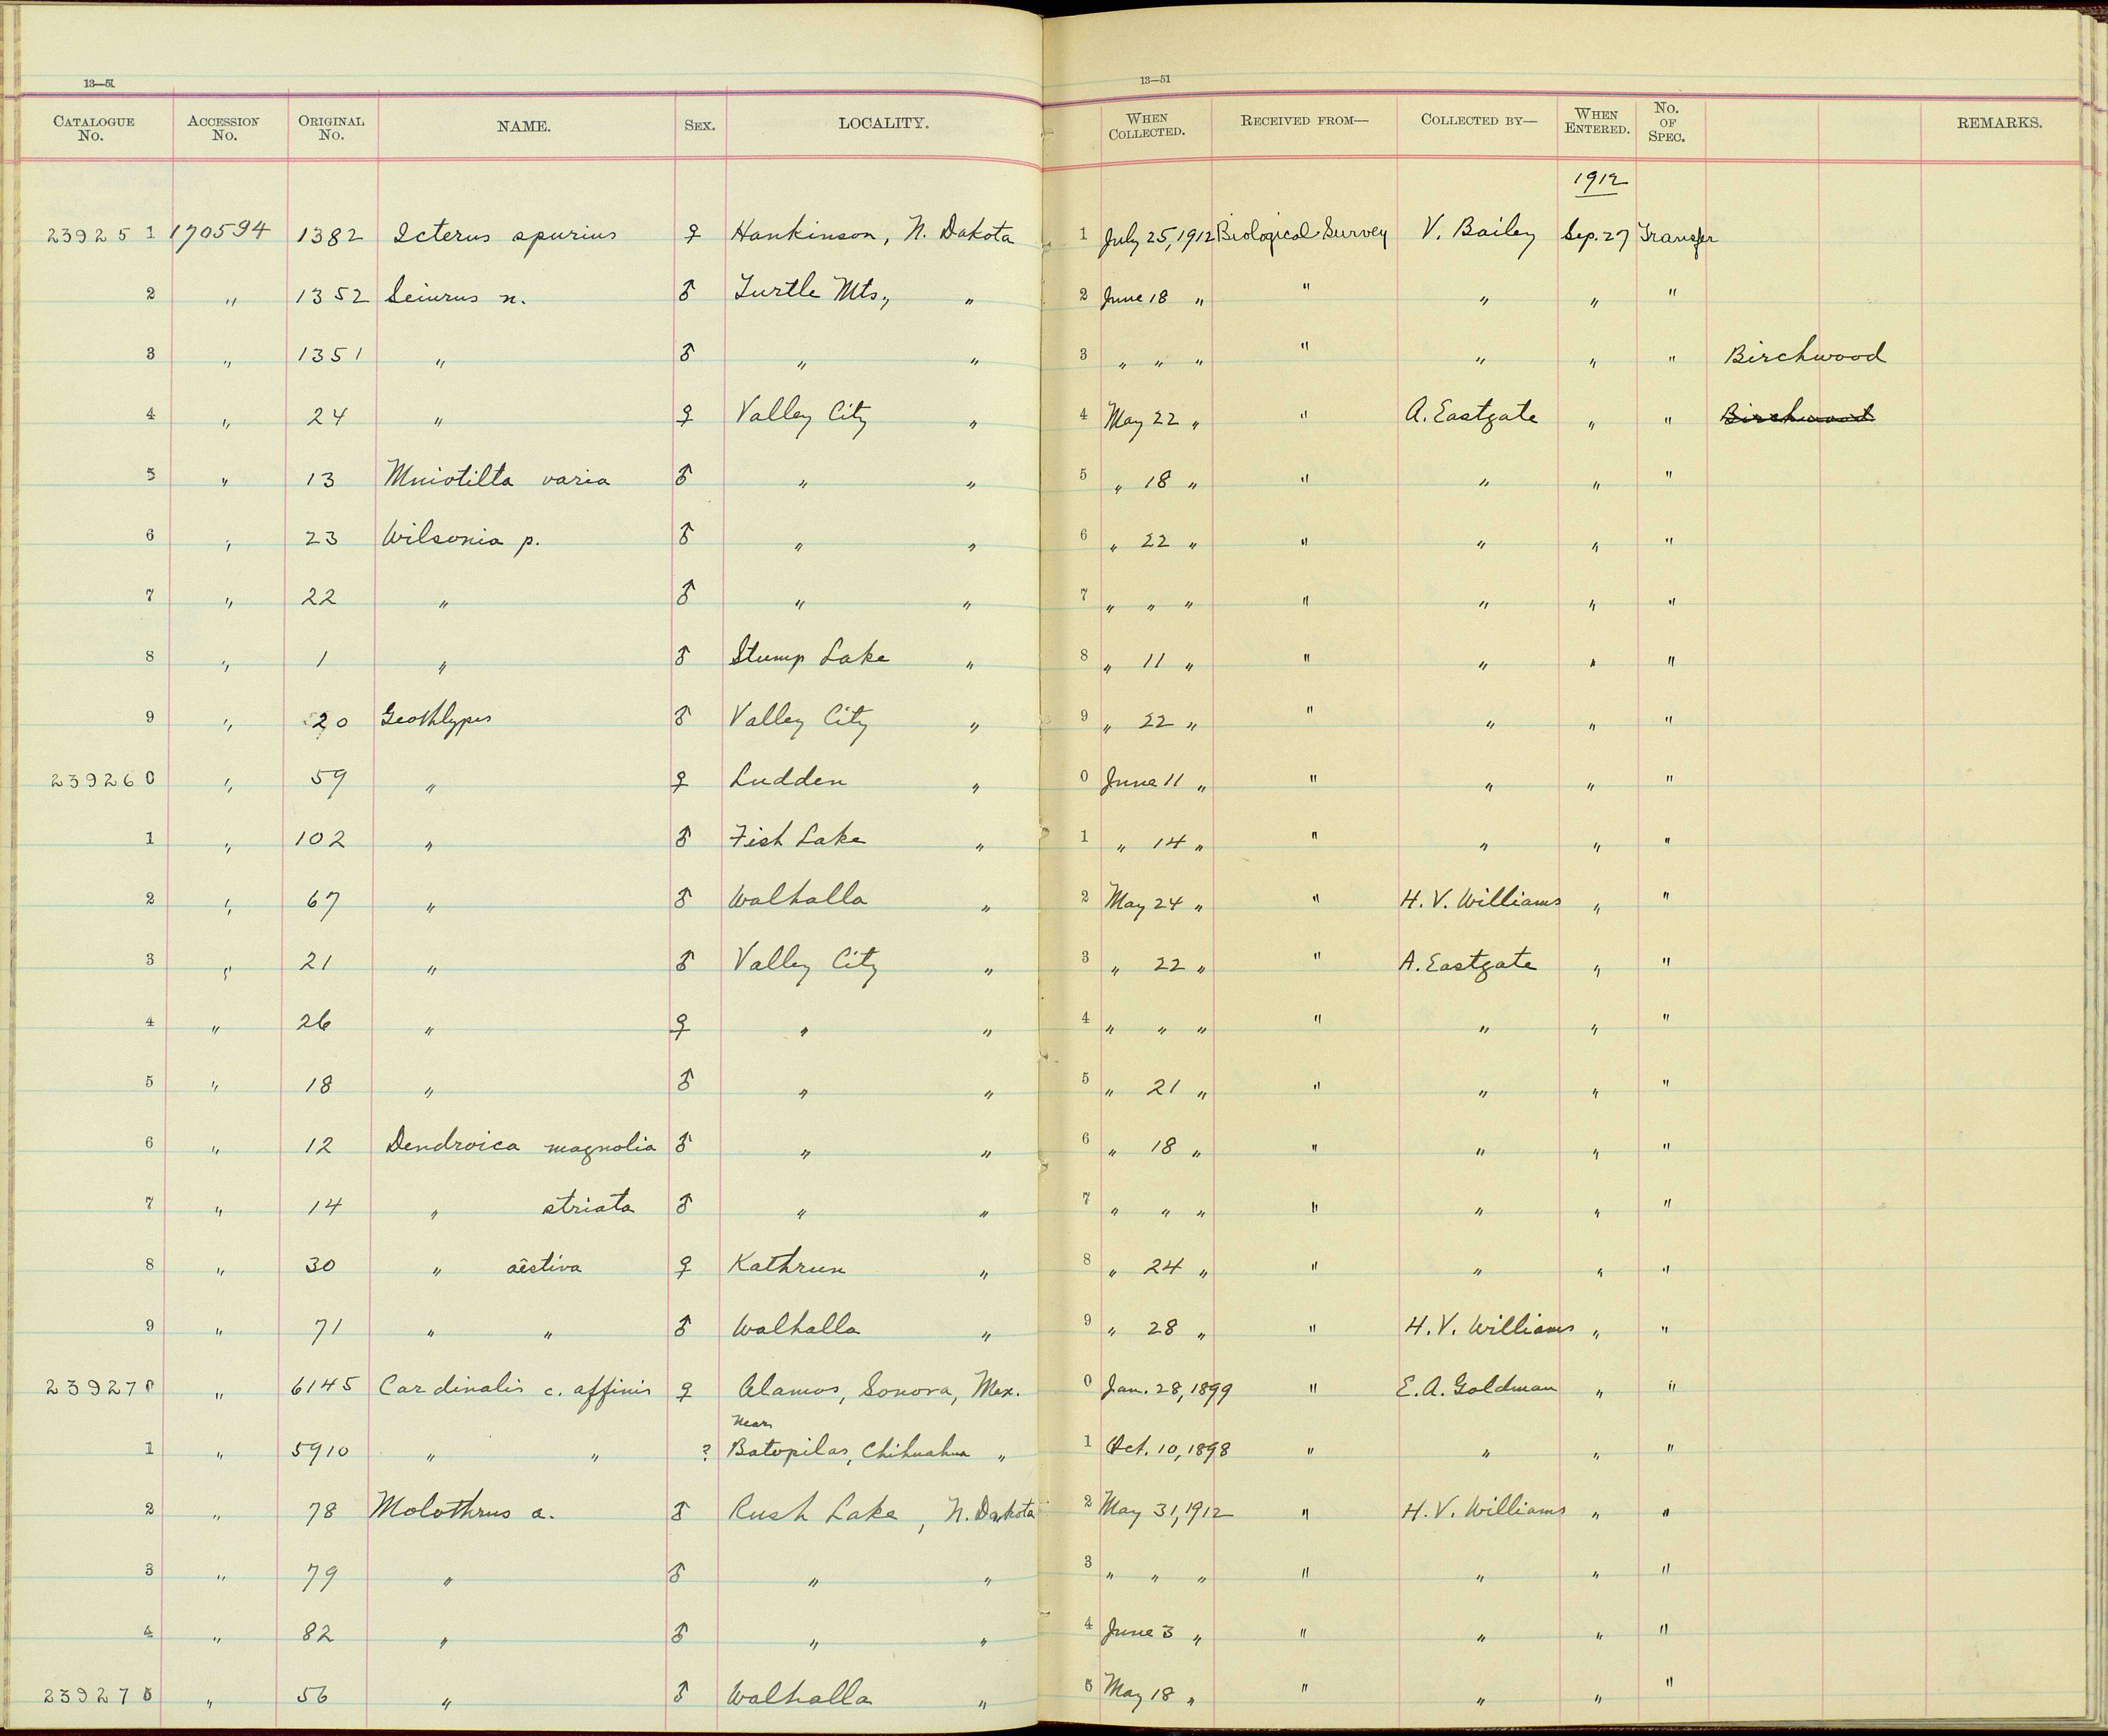 13—51 13—51
CATALOGUE No. ACCESSION No. ORIGINAL No. NAME. SEX. LOCALITY. WHEN COLLECTED. RECEIVED FROM— COLLECTED BY— WHEN ENTERED. No. OF SPEC. REMARKS.
1912
239251 170594 1382 Icterus spurius ♀ Hankinson, N. Dakota 1 July 25, 1912 Biological Survey V. Bailey Sep. 27 Transfer
2 " 1352 Seiurus n. ♂ Turtle Mts., " 2 June 18 " " " " "
3 " 1351 " ♂ " " 3 " " " " " " " Birchwood
4 " 24 " ♀ Valley City " 4 May 22 " " A. Eastgate " " Birchwood
5 " 13 Mniotilta varia ♂ " " 5 " 18 " " " " "
6 " 23 Wilsonia p. ♂ " " 6 " 22 " " " " "
7 " 22 " ♂ " " 7 " " " " " " "
8 " 1 " ♂ Stump Lake " 8 " 11 " " " " "
9 " 20 Geothlypis ♂ Valley City " 9 " 22 " " " " "
239260 " 59 " ♀ Ludden " 0 June 11 " " " " "
1 " 102 " ♂ Fish Lake " 1 " 14 " " " " "
2 " 67 " ♂ Walhalla " 2 May 24 " " H. V. Williams " "
3 " 21 " ♂ Valley City " 3 " 22 " " A. Eastgate " "
4 " 26 " ♀ " " 4 " " " " " " "
5 " 18 " ♂ " " 5 " 21 " " " " "
6 " 12 Dendroica magnolia ♂ " " 6 " 18 " " " " "
7 " 14 " striata ♂ " " 7 " " " " " " "
8 " 30 " aëstiva ♀ Kathrun " 8 " 24 " " " " "
9 " 71 " " ♂ Walhalla " 9 " 28 " " H. V. Williams " "
239270 " 6145 Cardinalis c. affinis ♀ Alamos, Sonora, Mex. 0 Jan. 28, 1899 " E. A. Goldman " "
Near
1 " 5910 " " ? Batopilas, Chihuahua " 1 Oct. 10, 1898 " " " "
2 " 78 Molothrus a. ♂ Rush Lake, N. Dakota 2 May 31, 1912 " H. V. Williams " "
3 " 79 " ♂ " " 3 " " " " " " "
4 " 82 " ♂ " " 4 June 3 " " " " "
239275 " 56 " ♂ Walhalla " 5 May 18 " " " " "